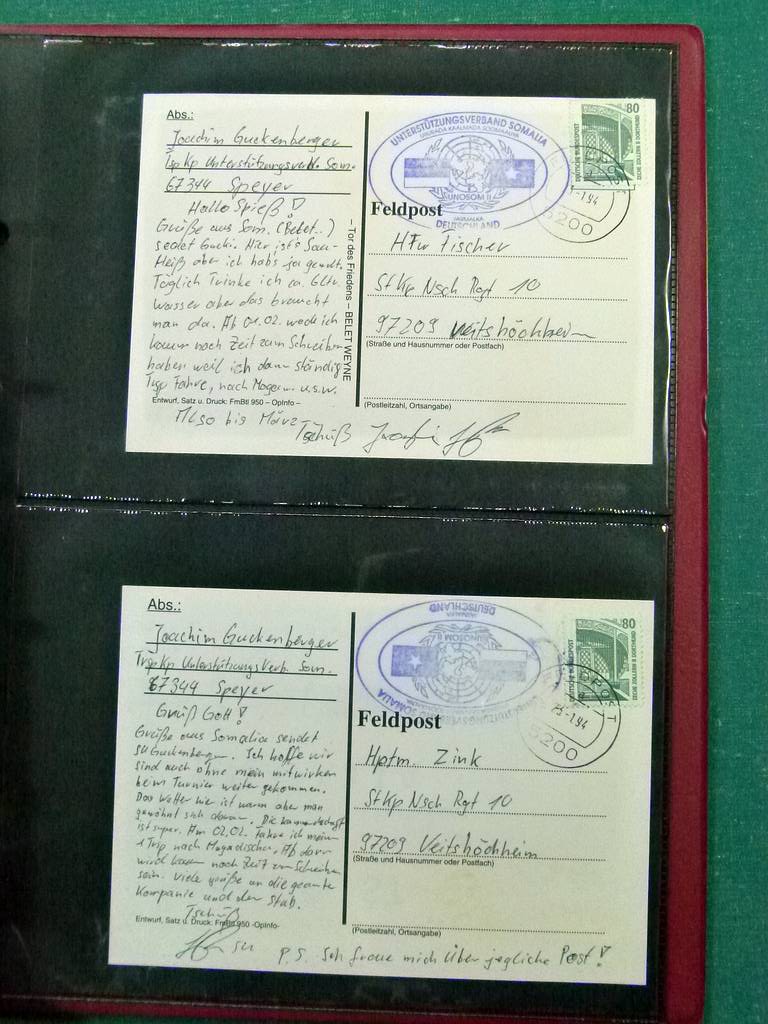 Abs.:
Joachim Guckenberger
TspKp Unterstützungsverb. Som.
67344 Speyer
Hallo Spieß!
Grüße aus Som. (Belet..)
sedet Gucki. Hier ist's Sau-
Heiß aber ich hab's ja gewollt.
Täglich Trinke ich ca. 6ltr.
Wasser aber das braucht
man da. Ab 01.02. werde ich
kaum noch Zeit zum Schreiben
haben weil ich dann ständig
Tsp Fahre, nach Mogem. u.s.w.
Entwurf, Satz u. Druck: FmBtl 950 – OpInfo –
Also bis März
Tschüß
– Tor des Friedens – BELET WEYNE
UNTERSTÜTZUNGSVERBAND SOMALIA
UNOSOM II
DEUTSCHLAND
80
DEUTSCHE BUNDESPOST
ZECHE ZOLLERN II DORTMUND
-1.94
5200
Feldpost
HFw Fischer
StKp Nsch Rgt 10
97209 Veitshöchheim
(Straße und Hausnummer oder Postfach)
(Postleitzahl, Ortsangabe)
Abs.:
Joachim Guckenberger
TrspKp Unterstützungsverb. Som.
67344 Speyer
Grüß Gott!
Grüße aus Somalia sendet
SU Guckenberger. Ich hoffe wir
sind auch ohne mein mitwirken
beim Turnier weiter gekommen.
Das Wetter hier ist warm aber man
gewöhnt sich daran. Die
ist super. Am 02.02. fahre ich mein
1 Trip nach Mogadischu, Ab dann
wird kaum noch Zeit zum Schreiben
sein. Viele grüße an die gesamte
Kompanie und den Stab.
Tschüß
Entwurf, Satz u. Druck: FmBtl 950 -OpInfo-
SU
P.S. Ich freue mich über jegliche Post!
DEUTSCHLAND
UNOSOM II
UNTERSTÜTZUNGSVERBAND SOMALIA
80
DEUTSCHE BUNDESPOST
ZECHE ZOLLERN II DORTMUND
-1.94
5200
Feldpost
Hptm. Zink
StKp Nsch Rgt 10
97209 Veitshöchheim
(Straße und Hausnummer oder Postfach)
(Postleitzahl, Ortsangabe)